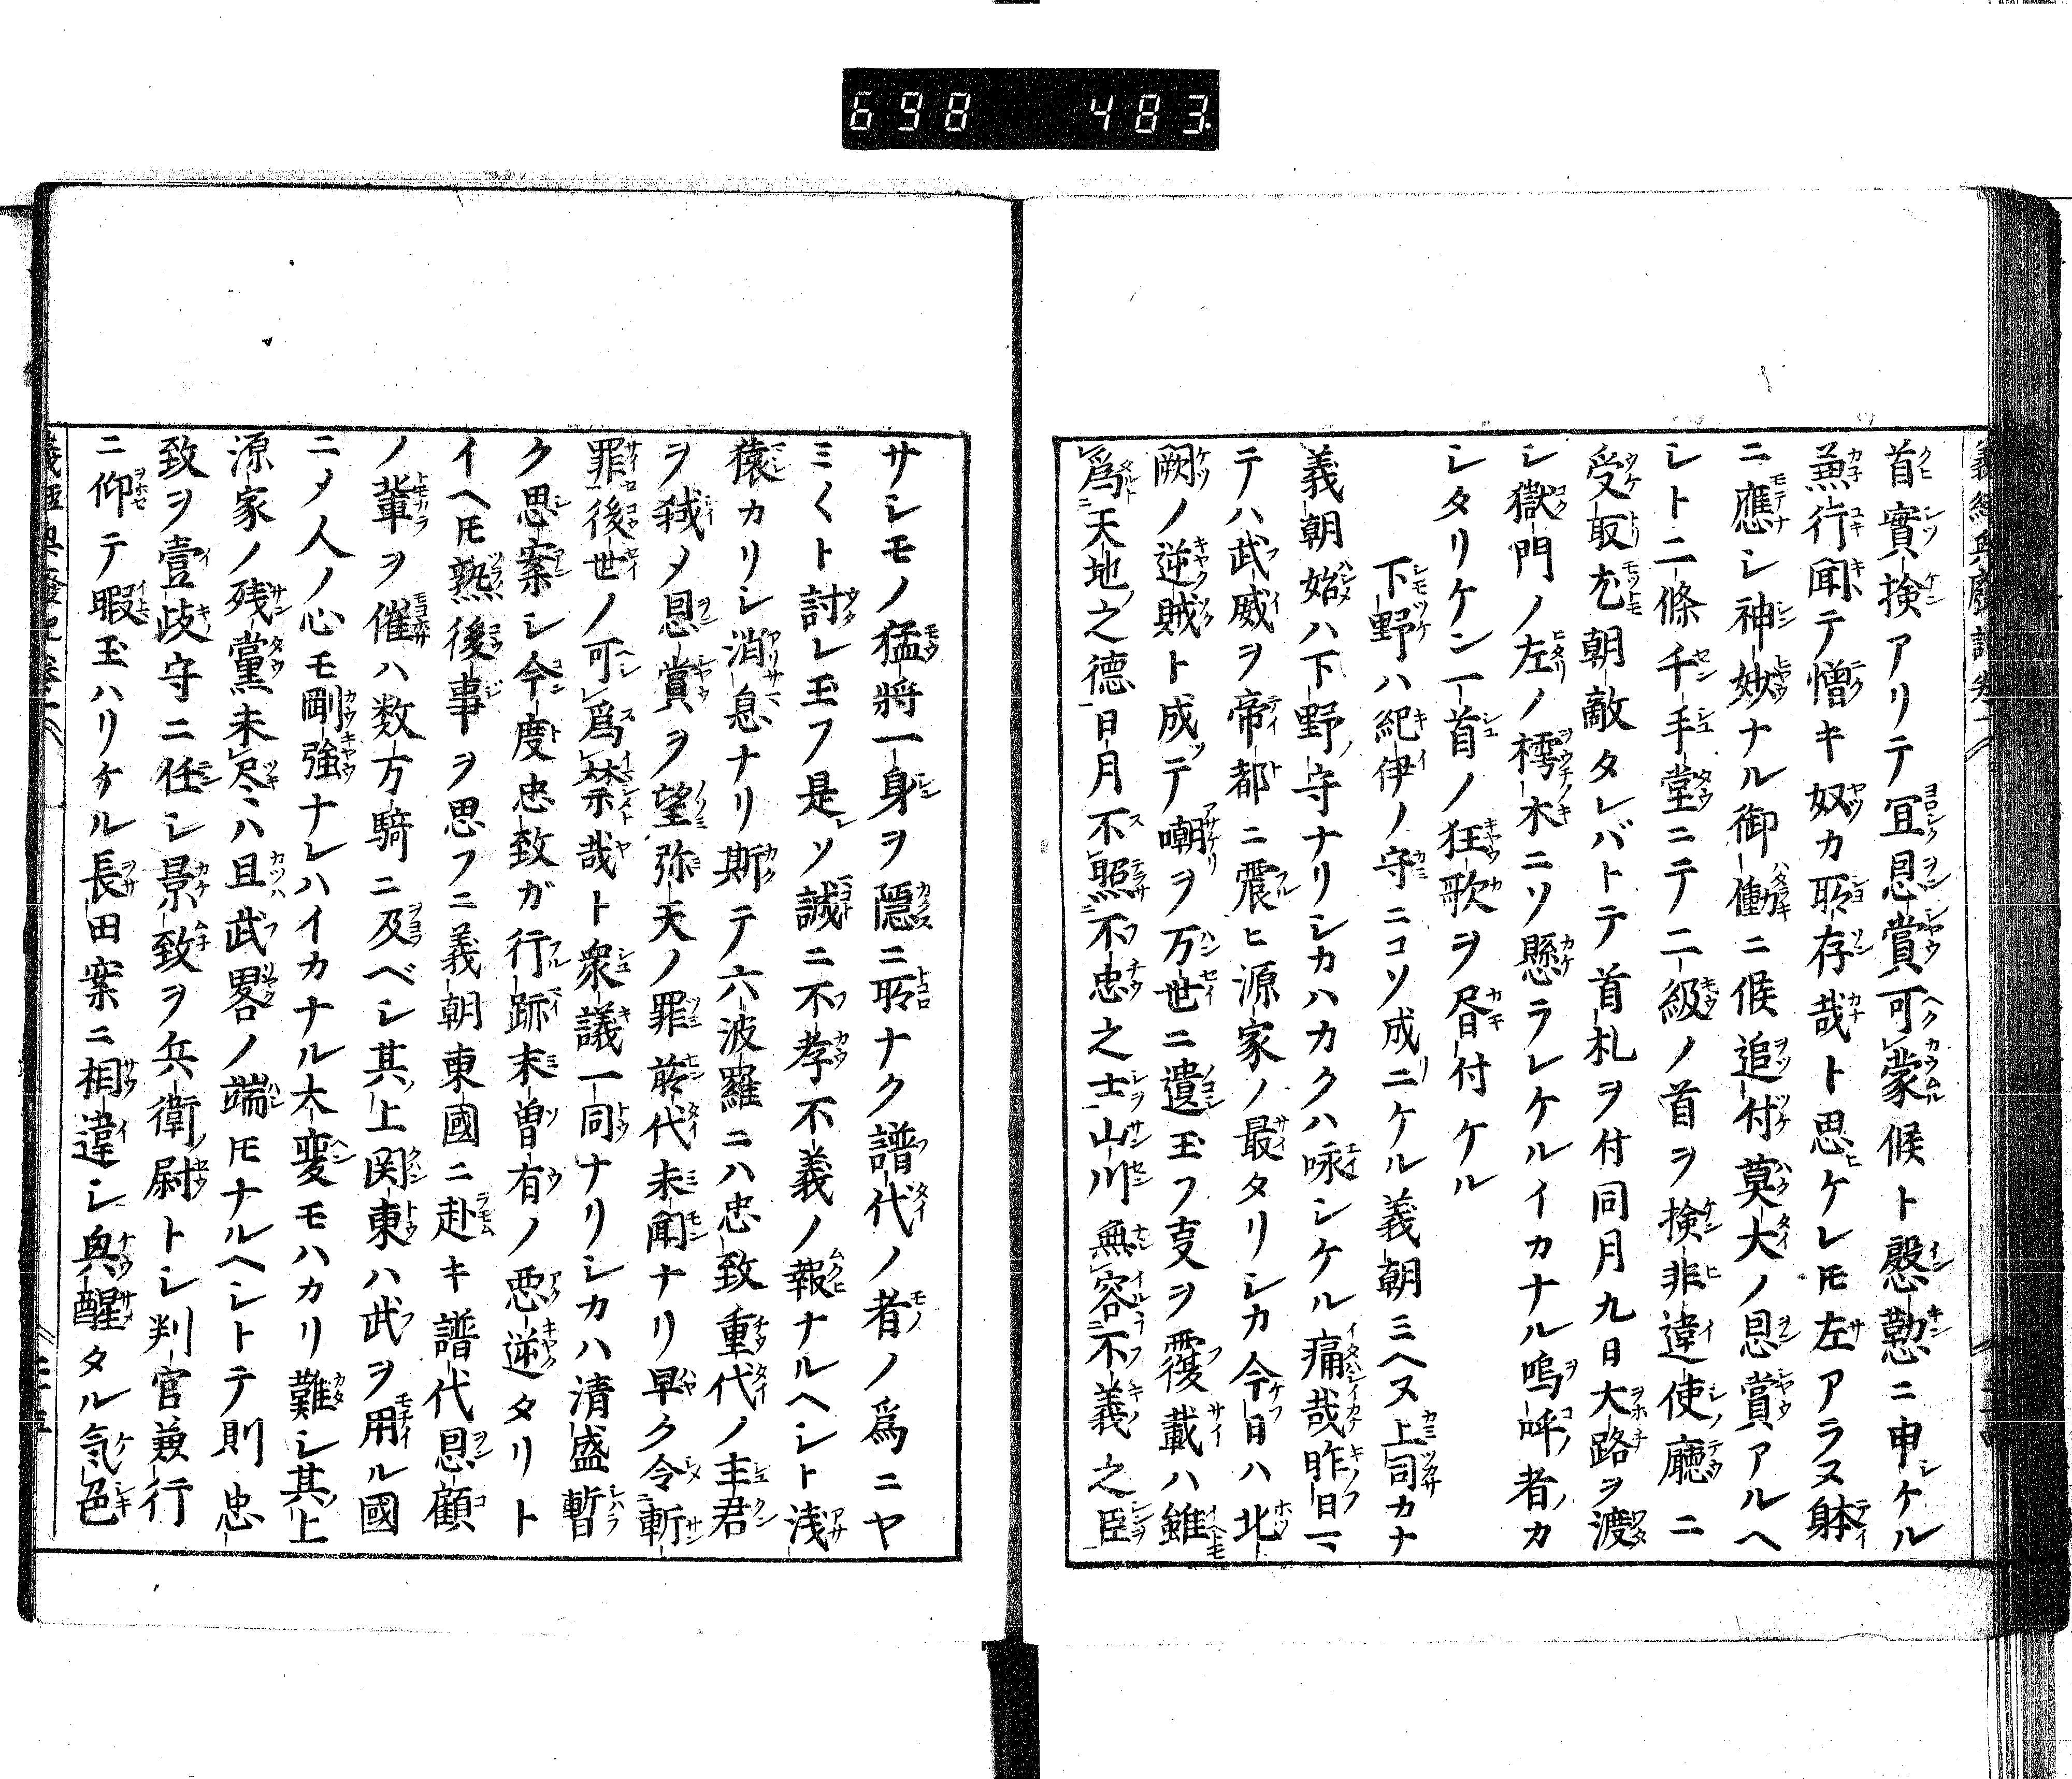 698 483
首實検アリテ冝恩賞可蒙候ト慇懃ニ申ケル
兼行聞テ憎キ奴カ所存哉ト思ケレ𪜈左アラヌ躰
ニ應シ神妙ナル御働ニ候追付莫大ノ恩賞アルヘ
シト二條千手堂ニテ二級ノ首ヲ検非違使廳ニ
受取尤朝敵タレバトテ首札ヲ付同月九日大路ヲ渡
シ獄門ノ左ノ樗木ニソ懸ラレケルイカナル嗚呼者カ
シタリケン一首ノ狂歌ヲ昼付ケル
下野ハ紀伊ノ守ニコソ成ニケル義朝ミヘヌ上司カナ
義朝始ハ下野守ナリシカハカクハ咏シケル痛哉昨日マ
テハ武威ヲ帝都ニ震ヒ源家ノ最タリシカ今日ハ北
闕ノ逆賊ト成テ嘲ヲ万世ニ遺玉フ叓ヲ覆載ハ雖
爲天地之德日月不照不忠之士山川無容不義之臣
サシモノ猛將一身ヲ隱ニ所ナク譜代ノ者ノ爲ニヤ
ミ〱ト討レ玉フ是ソ誠ニ不孝不義ノ報ナルヘシト浅
猿カリシ消息ナリ斯テ六波羅ニハ忠致重代ノ主君
ヲ弑メ恩賞ヲ望弥天ノ罪前代未聞ナリ早ク令斬
罪後世ノ可爲禁哉ト衆議一同ナリシカハ清盛暫
ク思案シ今度忠致ガ行跡末曽有ノ悪逆タリト
イヘ𪜈熟後事ヲ思フニ義朝東國ニ赴キ譜代恩顧
ノ輩ヲ催ハ数万騎ニ及ベシ其上関東ハ武ヲ用ル國
ニメ人ノ心モ剛強ナレハイカナル大変モハカリ難シ其上
源家ノ残黨未尽ハ且武畧ノ端𪜈ナルヘシトテ則忠
致ヲ壹岐守ニ任シ景致ヲ兵衛尉トシ判官兼行
ニ仰テ暇玉ハリケル長田案ニ相違シ興醒タル気色